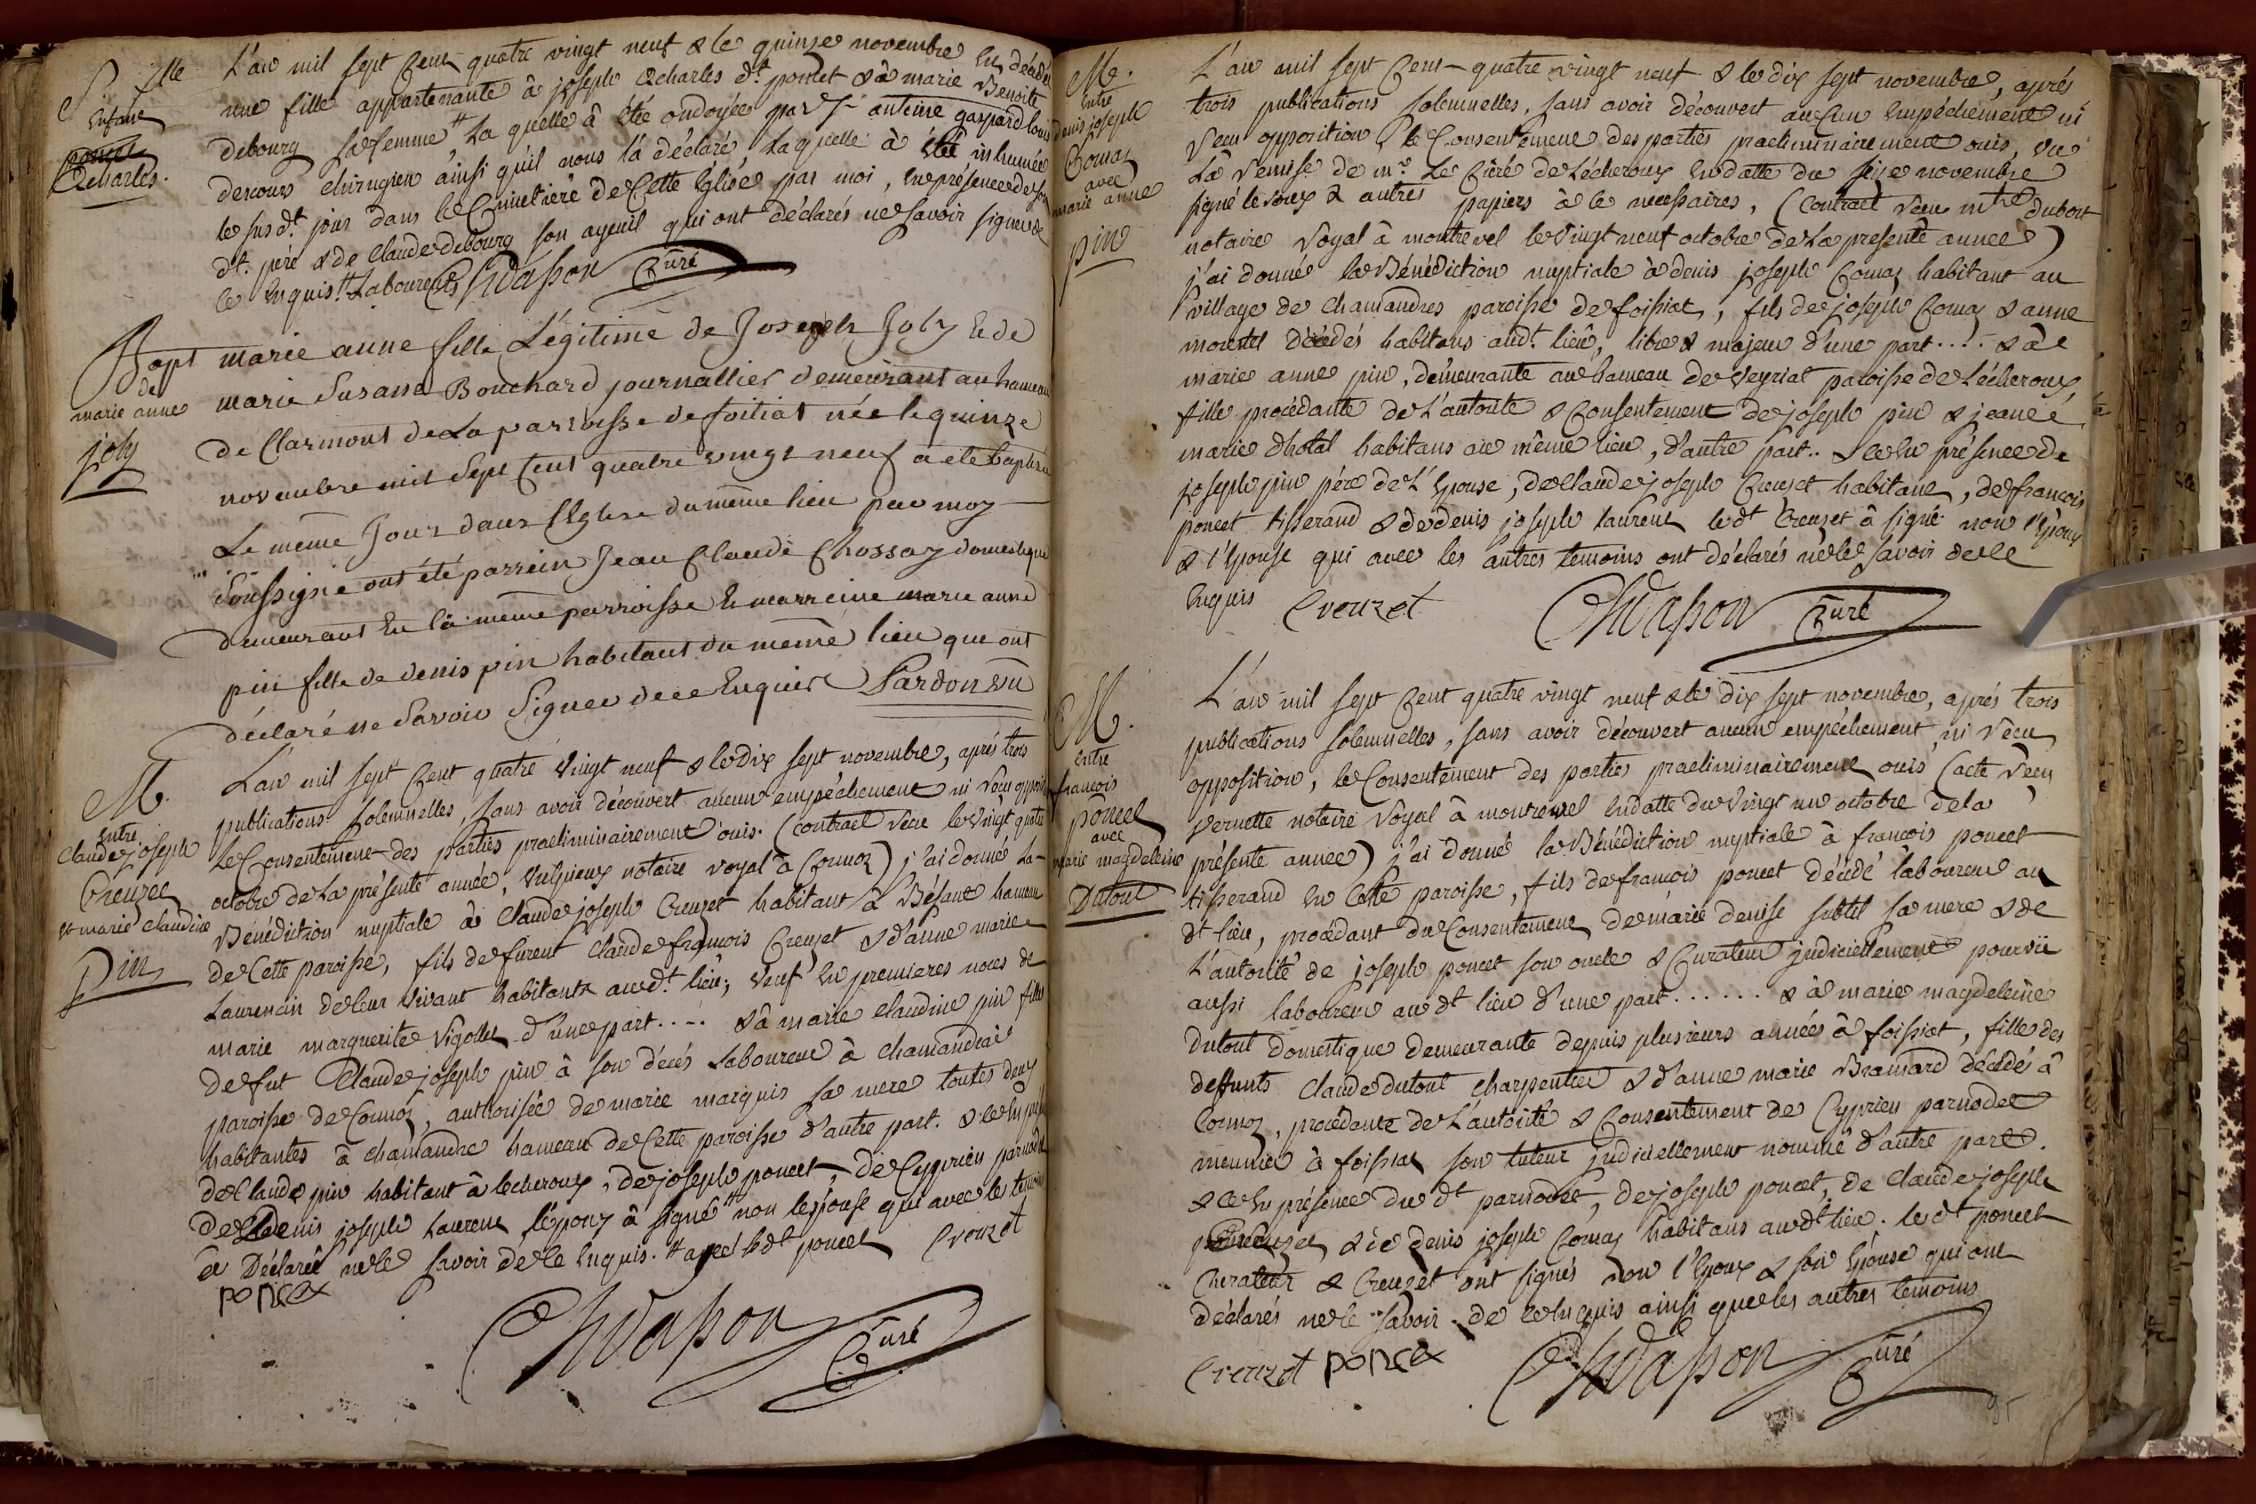 S. fille
Enfant
poncet
Echarles.
L'an mil sept cent quatre vingt neuf & le quinze novembre est décédée
une fille appartenante à joseph Echarles dt. poncet & à marie Benoite
debourg sa femme, la quelle à été ondoyée par Sr antoine gaspard louis
descours chirugien ainsi qu'il nous l'a déclaré, laquelle à été inhumée
le susdt. jour dans le Cimetière de Cette Eglise par moi, en présence de son
dt. père & de Claude debourg son ayeuil qui ont déclarés ne savoir signer de
ce enquis. laboureurs Chivasson Curé
Bapt
de
marie anne
joly
marie anne fille Légitime de Joseph Joly et de
marie Susane Bouchard journallier demeurant au hameau
de Clarmont de La parroisse de foitiat née le quinze
novembre mil Sept Cent quatre vingt neuf a eté Baptisée
Le même Jour dans l'Eglise du même lieu par moy
Soussigné ont été parrein Jean Claude Chossay domestique
demeurant En la même parroisse Et marreine marie anne
pin fille de denis pin habitant du même lieu que ont
déclaré ne Savoir Signer de ce Enquis Pardon
M.
Entre
Claude joseph
Creuzet
& marie Claudine
Pin
L'an mil sept Cent quatre vingt neuf & le dix sept novembre, après trois
publications solemnelles, sans avoir découvert aucun empéchement ni Reçu oppositi
le Consentement des parties praeliminairement ouis. (contract Reçu le vingt quatre
octobre de La présente année, notaire Royal à Cormoz) j'ai donné la
Bénédiction nuptiale à Claude joseph Creuzet habitant à Béfant hameau
de Cette paroisse, fils de furent Claude françois Creuzet & d'anne marie
Laurencin de leur vivant habitants audt. lieu; veuf En premieres noces de
marie marguerite Vigollet d'une part.... & à marie Claudine pin fille
de fut Claude joseph pin à son décés Laboureur à Chamandrai
paroisse de Cormoz, authorisée de marie marquis sa mere toutes deux
habitantes à chamandre hameau de Cette paroisse d'autre part. & ce En
de Claude pin habitant à lecheroux, de joseph poncet, de Cyprien parnodet
de Denis joseph Laurent l'époux à signé non l'épouse qui avec les témoins
a Déclaré ne le savoir de ce Enquis. avec le dt poncet Creuzet
poncet
Chivasson Curé
M.
Entre
denis joseph
Comaz
avec
marie anne
pin
L'an mil sept Cent quatre vingt neuf & le dix sept novembre, après
trois publications solemnelles, sans avoir découvert aucun empéchement ni
Reçu opposition, le Consentement des parties praeliminairement ouis, vu
La Remise de mr. Le Curé de Lécheroux En datte du seize novembre
signé leroux & autres papiers à ce necessaires, (Contract Reçu mtre dubost
notaire Royal à montrevel le vingt neuf octobre de La presente annee)
j'ai donné la Bénédiction nuptiale à denis joseph Comaz habitant au
village de Chamandres paroisse de foissiat, fils de joseph Comaz & anne
morestel décédés habitans audt. lieu, libre & majeur d'une part.... & à
marie anne pin, demeurante au hameau de Veyriat paroisse de Lécheroux,
fille procédante de L'autorité & Consentement de joseph pin & jeanne
marie dhotal habitans au même lieu, d'autre part.. & ce En présence de
joseph pin père de L'Epouse, de Claude joseph Creuzet habitant, de françois
poncet tisserand & de denis joseph laurent ledt Creuzet à signé non l'Epoux
& l'Epouse qui avec les autres temoins ont déclarés ne le savoir de ce
Enquis Creuzet Chivasson Curé
M.
Entre
francois
poncet
avec
marie magdeleine
Dutout
L'an mil sept Cent quatre vingt neuf & le dix sept novembre, aprés trois
publications solemnelles, sans avoir découvert aucun empéchement, ni Reçu
opposition, le Consentement des parties praeliminairement ouis (acte Reçu
vernette notaire Royal à montrevel en datte du vingt un octobre de la
présente annee) j'ai donné la Bénédiction nuptiale à françois poncet
tisserand En Cette paroisse, fils de françois poncet décédé laboureur au
dt lieu, procédant du Consentement de marie denise subtil sa mere & de
L'autorité de joseph poncet son oncle & Curateur judiciellement pourvü
aussi laboureur audt lieu d'une part...... & à marie magdeleine
Dutout Domestique demeurante depuis plusieurs années à foissiat, fille des
deffunts Claude dutout charpentier & d'anne marie Bramard décédé à
Cormoz, procédante de L'autorité & Consentement de Cyprien parnodet
meunier à foissiat son tuteur judiciellement nommé d'autre part.
& ce En présence du dt parnodet, de joseph poncet, de Claude joseph
Creuzet, & de denis joseph Comaz habitans audt lieu. le dt poncet
Curateur & Creuzet ont signés non l'Epoux & son Epouse qui ont
déclarés ne le savoir de ce Enquis ainsi que les autres temoins
Creuzet poncet Chivasson Curé
95